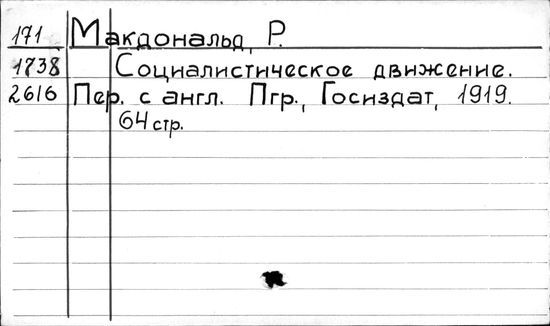 171 Макдональд, Р.
1738 Социалистическое движение.
2616 Пер. с англ. Пгр., Госиздат, 1919.
64 стр.